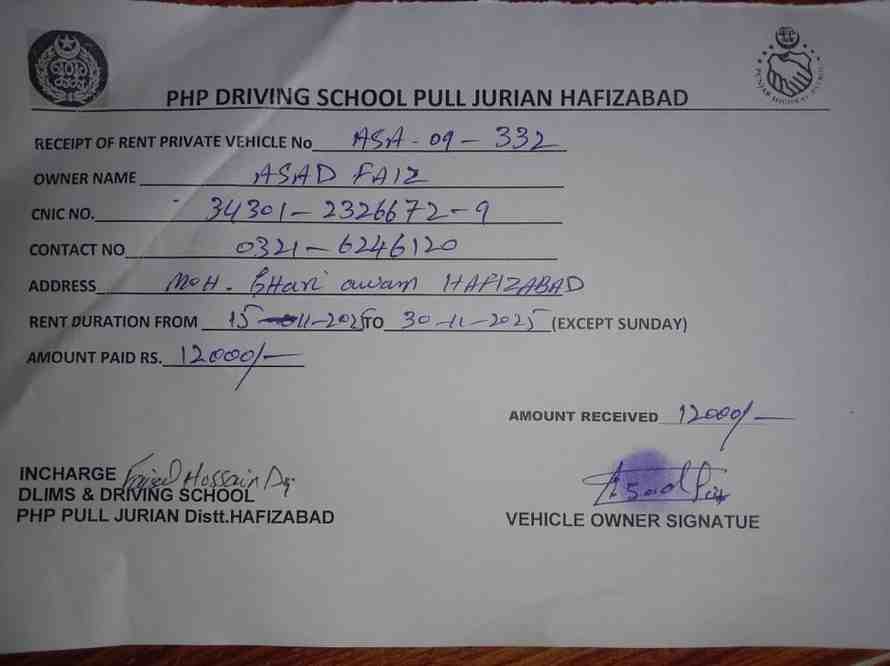 PHP DRIVING SCHOOL PULL JURIAN HAFIZABAD
RECEIPT OF RENT PRIVATE VEHICLE No ASA-09-332
OWNER NAME ASAD FAIZ
CNIC NO. 34301-2326672-9
CONTACT NO 0321-6246120
ADDRESS MOH. GHari awam HAFIZABAD
RENT DURATION FROM 15-11-2025 TO 30-11-2025 (EXCEPT SUNDAY)
AMOUNT PAID RS. 12000/-
AMOUNT RECEIVED 12000/-
INCHARGE Hossain
DLIMS & DRIVING SCHOOL
PHP PULL JURIAN Distt.HAFIZABAD
Asad Faiz
VEHICLE OWNER SIGNATUE